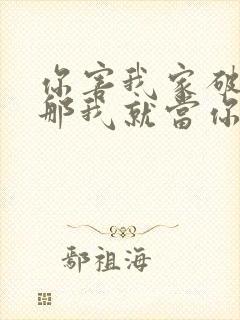 你害我家破
那我就當你
鄢祖海